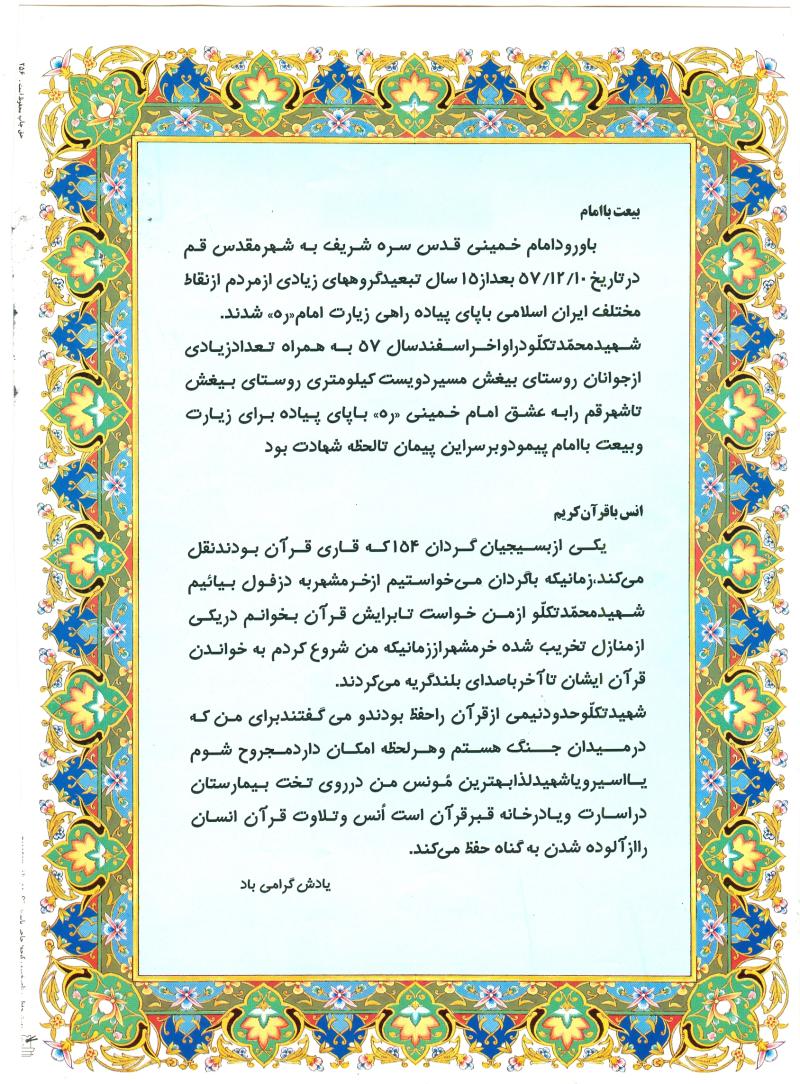 حق چاپ محفوظ است . ۲۵۶
بیعت باامام
باورودامام خمینی قدس سره شریف به شهرمقدس قم
درتاریخ ۵۷/۱۲/۱۰ بعداز۱۵ سال تبعیدگروههای زیادی ازمردم ازنقاط
مختلف ایران اسلامی باپای پیاده راهی زیارت امام«ره» شدند.
شهیدمحمّدتکلّودراواخراسفندسال ۵۷ به همراه تعدادزیادی
ازجوانان روستای بیغش مسیردویست کیلومتری روستای بیغش
تاشهرقم رابه عشق امام خمینی «ره» باپای پیاده برای زیارت
وبیعت باامام پیمودوبرسراین پیمان تالحظه شهادت بود
انس باقرآن کریم
یکی ازبسیجیان گردان ۱۵۴که قاری قرآن بودندنقل
می‌کند،زمانیکه باگردان می‌خواستیم ازخرمشهربه دزفول بیائیم
شهیدمحمّدتکلّو ازمن خواست تابرایش قرآن بخوانم دریکی
ازمنازل تخریب شده خرمشهراززمانیکه من شروع کردم به خواندن
قرآن ایشان تاآخرباصدای بلندگریه می‌کردند.
شهیدتکلّوحدودنیمی ازقرآن راحفظ بودندو می گفتندبرای من که
درمیدان جنگ هستم وهرلحظه امکان داردمجروح شوم
یااسیرویاشهیدلذابهترین مُونس من درروی تخت بیمارستان
دراسارت ویادرخانه قبرقرآن است اُنس وتلاوت قرآن انسان
راازآلوده شدن به گناه حفظ می‌کند.
یادش گرامی باد